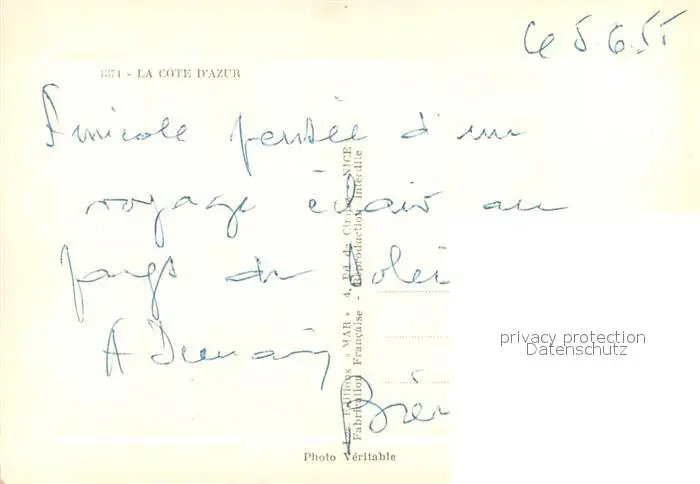 Le 5.6.55
1374 - LA COTE D'AZUR
Amicale pensée d'un
voyage éclair au
pays du Solei
A Demain
Les Éditions « MAR » 4, Rd de Cimiez NICE
Fabrication Française - Reproduction Interdite
privacy protection
Datenschutz
Photo Véritable